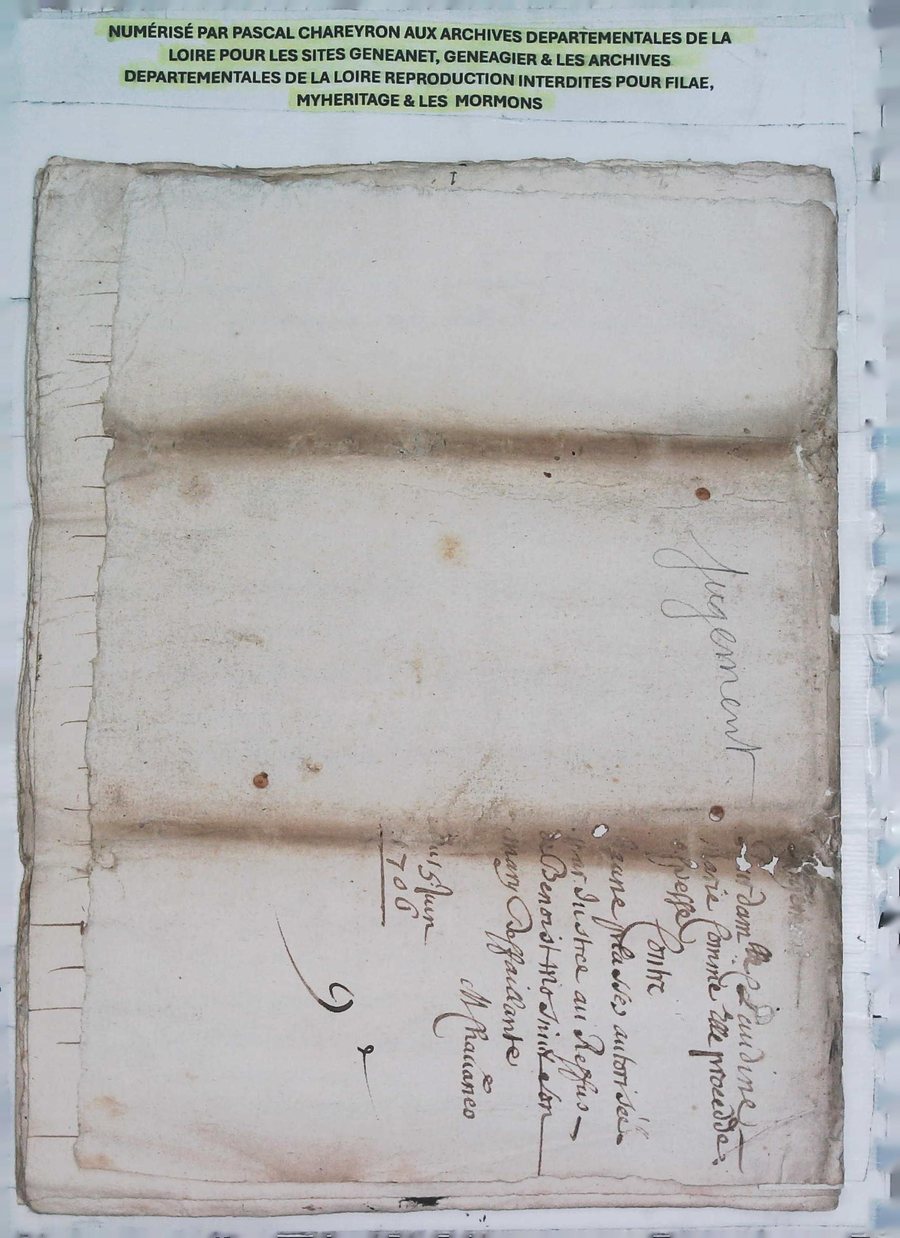 NUMÉRISÉ PAR PASCAL CHAREYRON AUX ARCHIVES DEPARTEMENTALES DE LA
LOIRE POUR LES SITES GENEANET, GENEAGIER & LES ARCHIVES
DEPARTEMENTALES DE LA LOIRE REPRODUCTION INTERDITES POUR FILAE,
MYHERITAGE & LES MORMONS
1
Jugement
Pour dam lle
Marie Comme elle procedde
Contre
autorisée
par Justice au Reffus
de Benoist son
mary deffaillante
M Chauanco
Du 15 Juin
1706